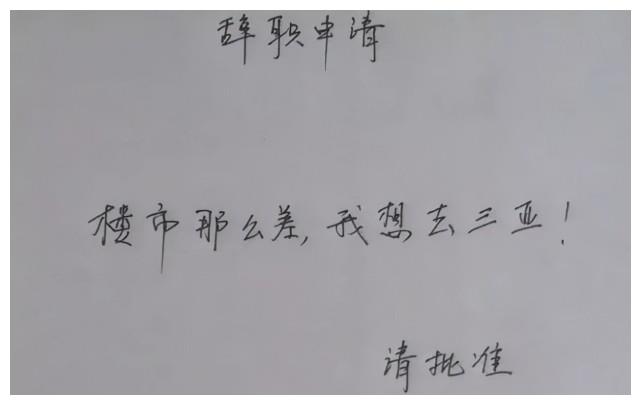 辞职申请
楼市那么差，我想去三亚！
请批准